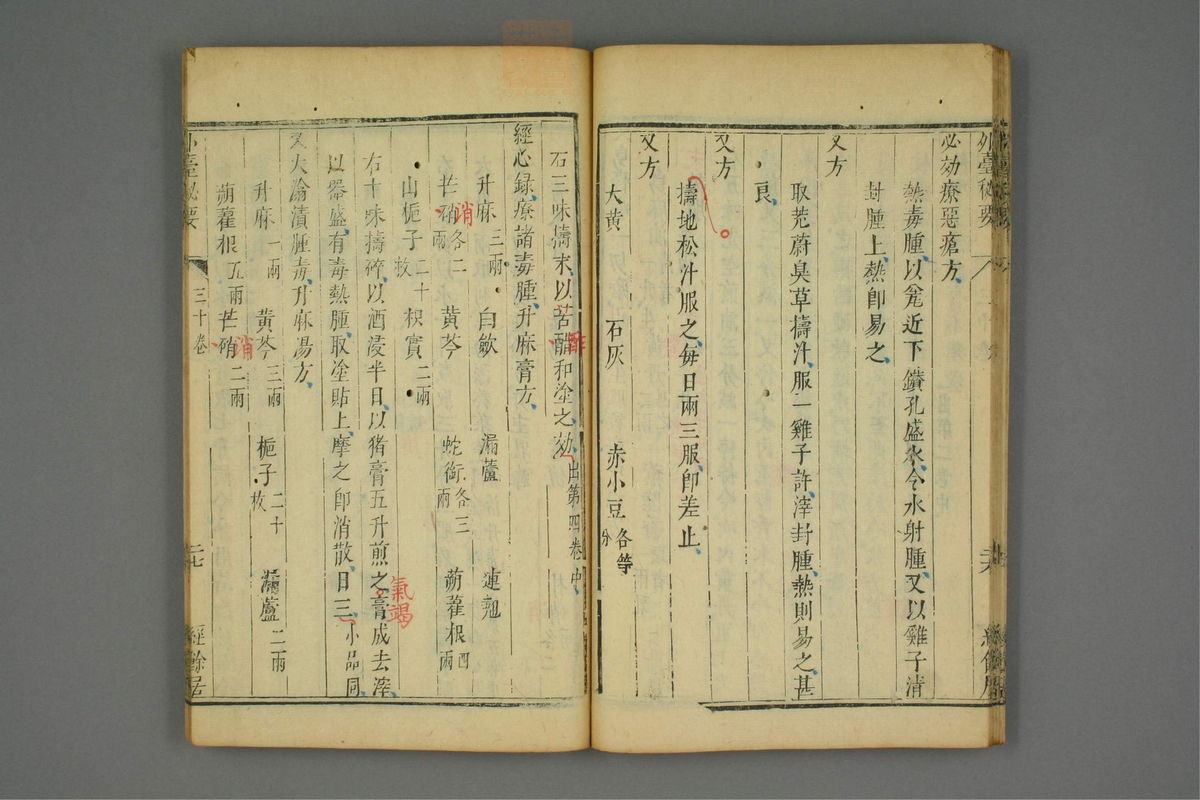 外臺祕要
必効療惡瘡方
熱毒腫以瓮近下鑽孔盛水令水射腫又以雞子清
封腫上熱即易之
又方
取茺蔚臭草擣汁服一雞子許滓封腫熱則易之甚
良
又方
擣地松汁服之每日兩三服即差止
又方
大黄 石灰 赤小豆各等分
右三味擣末以苦醋和塗之効出第四卷中
酢
經心録療諸毒腫升麻膏方
升麻三兩 白歛 漏蘆 連翹
芒硝各二兩 黄芩 蛇銜各三兩 蒴藋根四兩
消
山梔子二十枚 枳實二兩
右十味擣碎以酒浸半日以猪膏五升煎之膏成去滓
氣竭
以器盛有毒熱腫取塗貼上摩之即消散日三小品同
又大渝漬腫毒升麻湯方
升麻一兩 黄芩三兩 梔子二十枚 漏蘆二兩
蒴藋根五兩 芒硝二兩
消
外臺祕要 三十卷 二七 經餘居